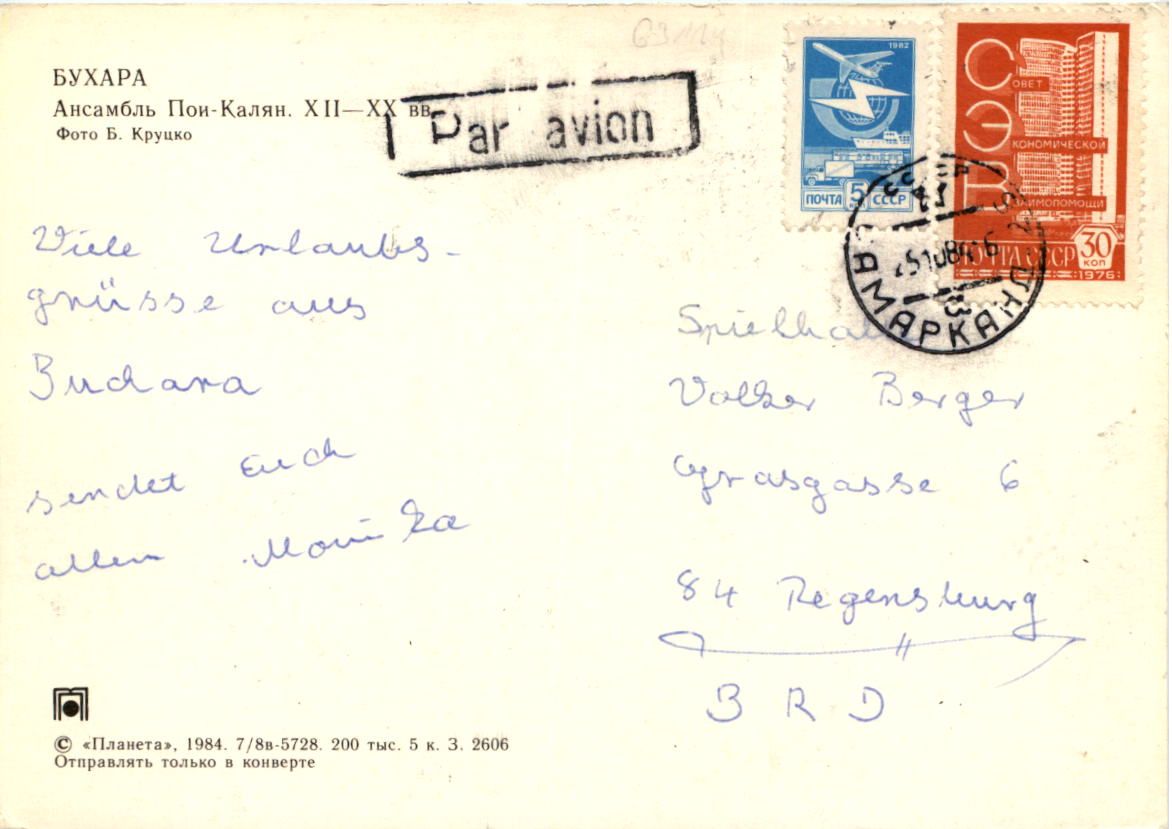 БУХАРА
Ансамбль Пои-Калян. XII—XX вв.
Фото Б. Круцко
Par avion
1982
ПОЧТА 5 СССР
СОВЕТ
ЭКОНОМИЧЕСКОЙ
ВЗАИМОПОМОЩИ
ПОЧТА СССР 30 КОП
1976
СССР
САМАРКАНД
Viele Urlaubs-
grüsse aus
Buchara
sendet Euch
allen Monika
Volker Berger
Grasgasse 6
84 Regensburg
BRD
© «Планета», 1984. 7/8в-5728. 200 тыс. 5 к. З. 2606
Отправлять только в конверте